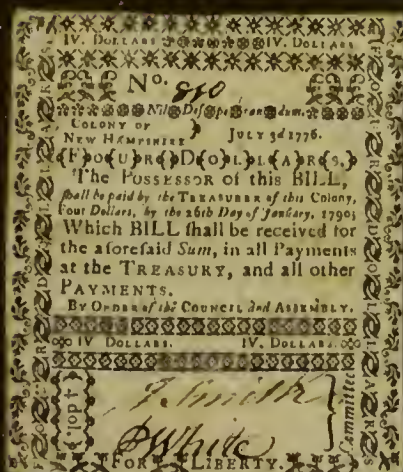 IV. DOLLARS IV. DOLLARS
No. 
Nil Desperandum.
COLONY OF
NEW HAMPSHIRE } JULY 3d 1776.
FOUR DOLLARS.
The POSSESSOR of this BILL,
ſhall be paid by the TREASURER of this Colony,
Four Dollars, by the 26th Day of January, 1790;
Which BILL ſhall be received for
the aforeſaid Sum, in all Payments
at the TREASURY, and all other
PAYMENTS.
BY ORDER of the COUNCIL and ASSEMBLY.
IV DOLLARS. IV. DOLLARS.
White
Committee
FOR LIBERTY.
FOUR DOLLARS